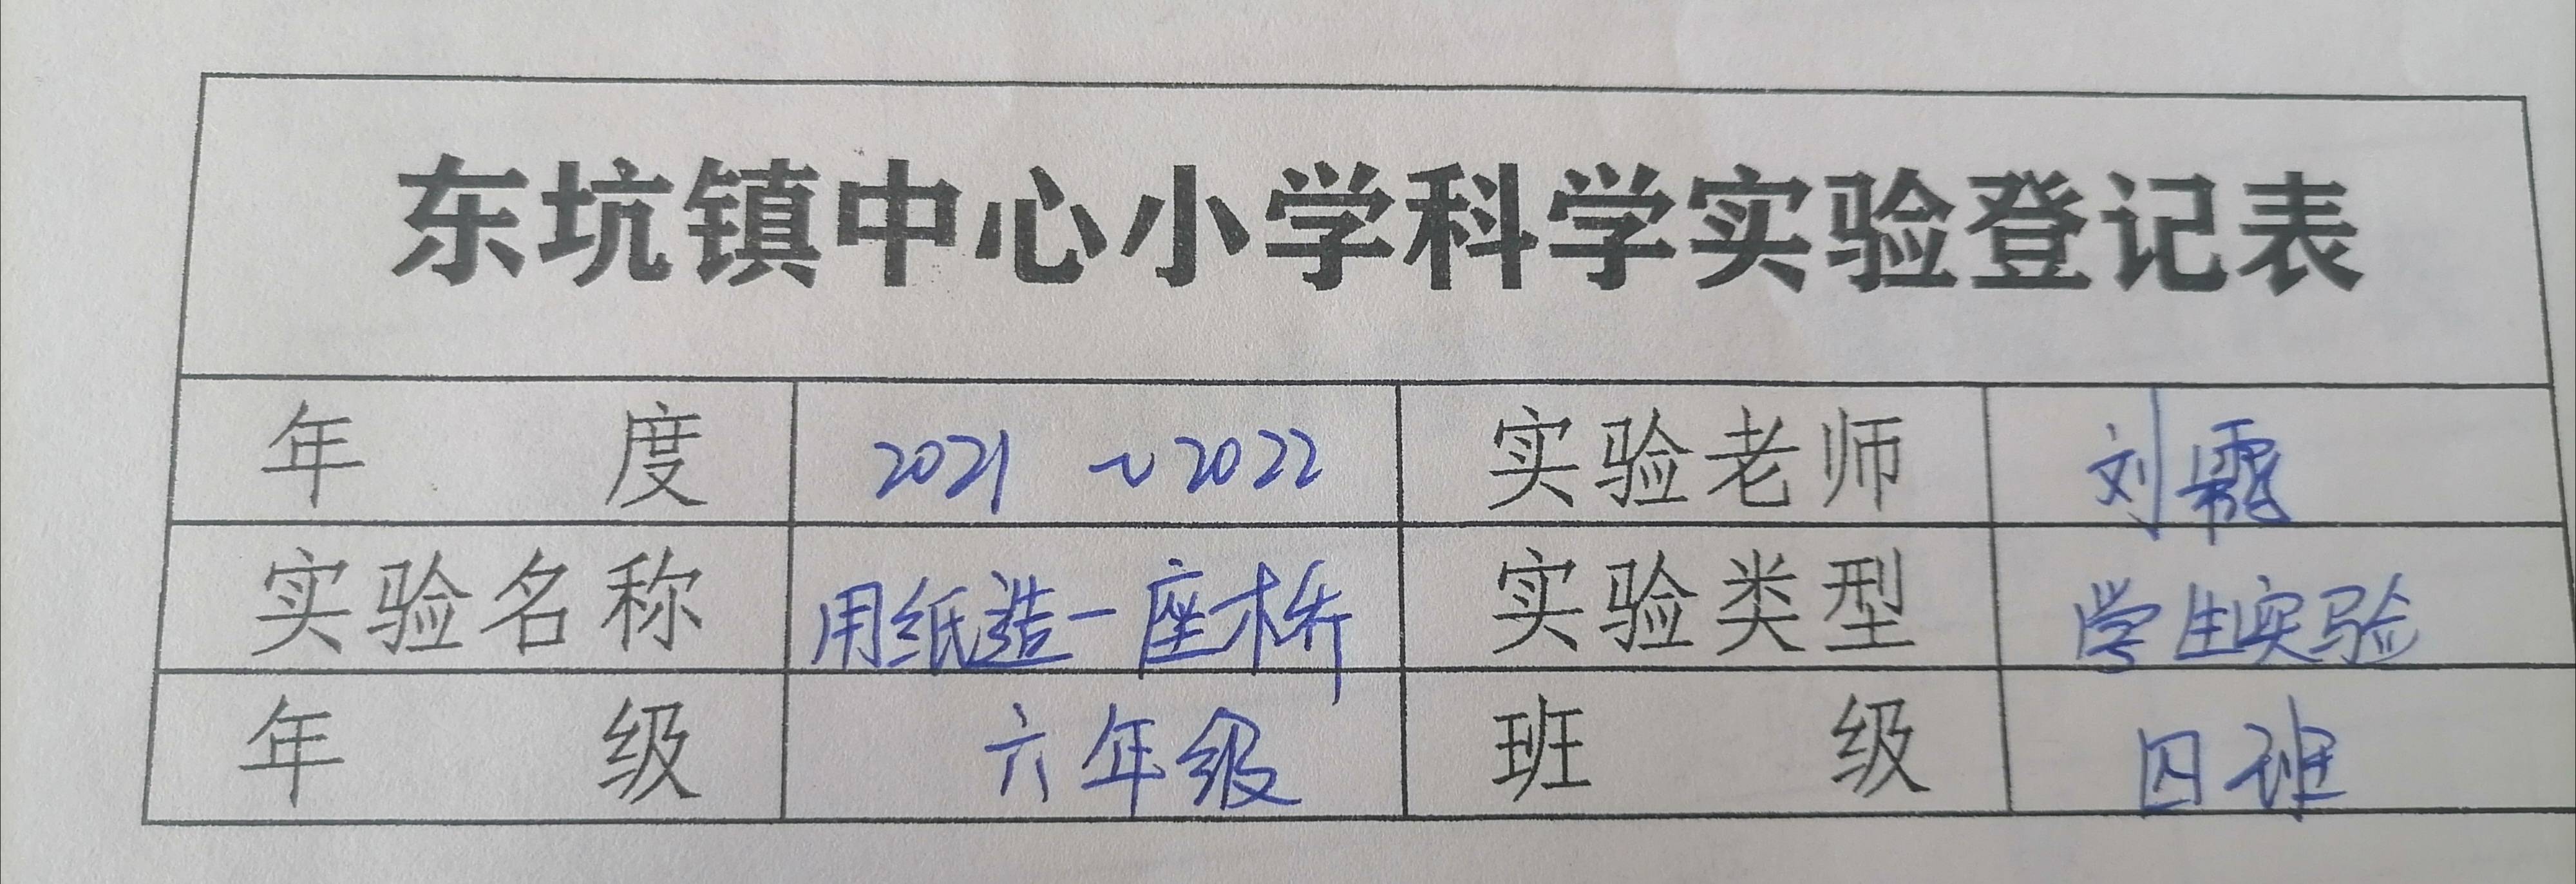 东坑镇中心小学科学实验登记表
年 度 2021 ~2022 实验老师 刘
实验名称 用纸造一座桥 实验类型 学生实验
年 级 六年级 班 级 四班